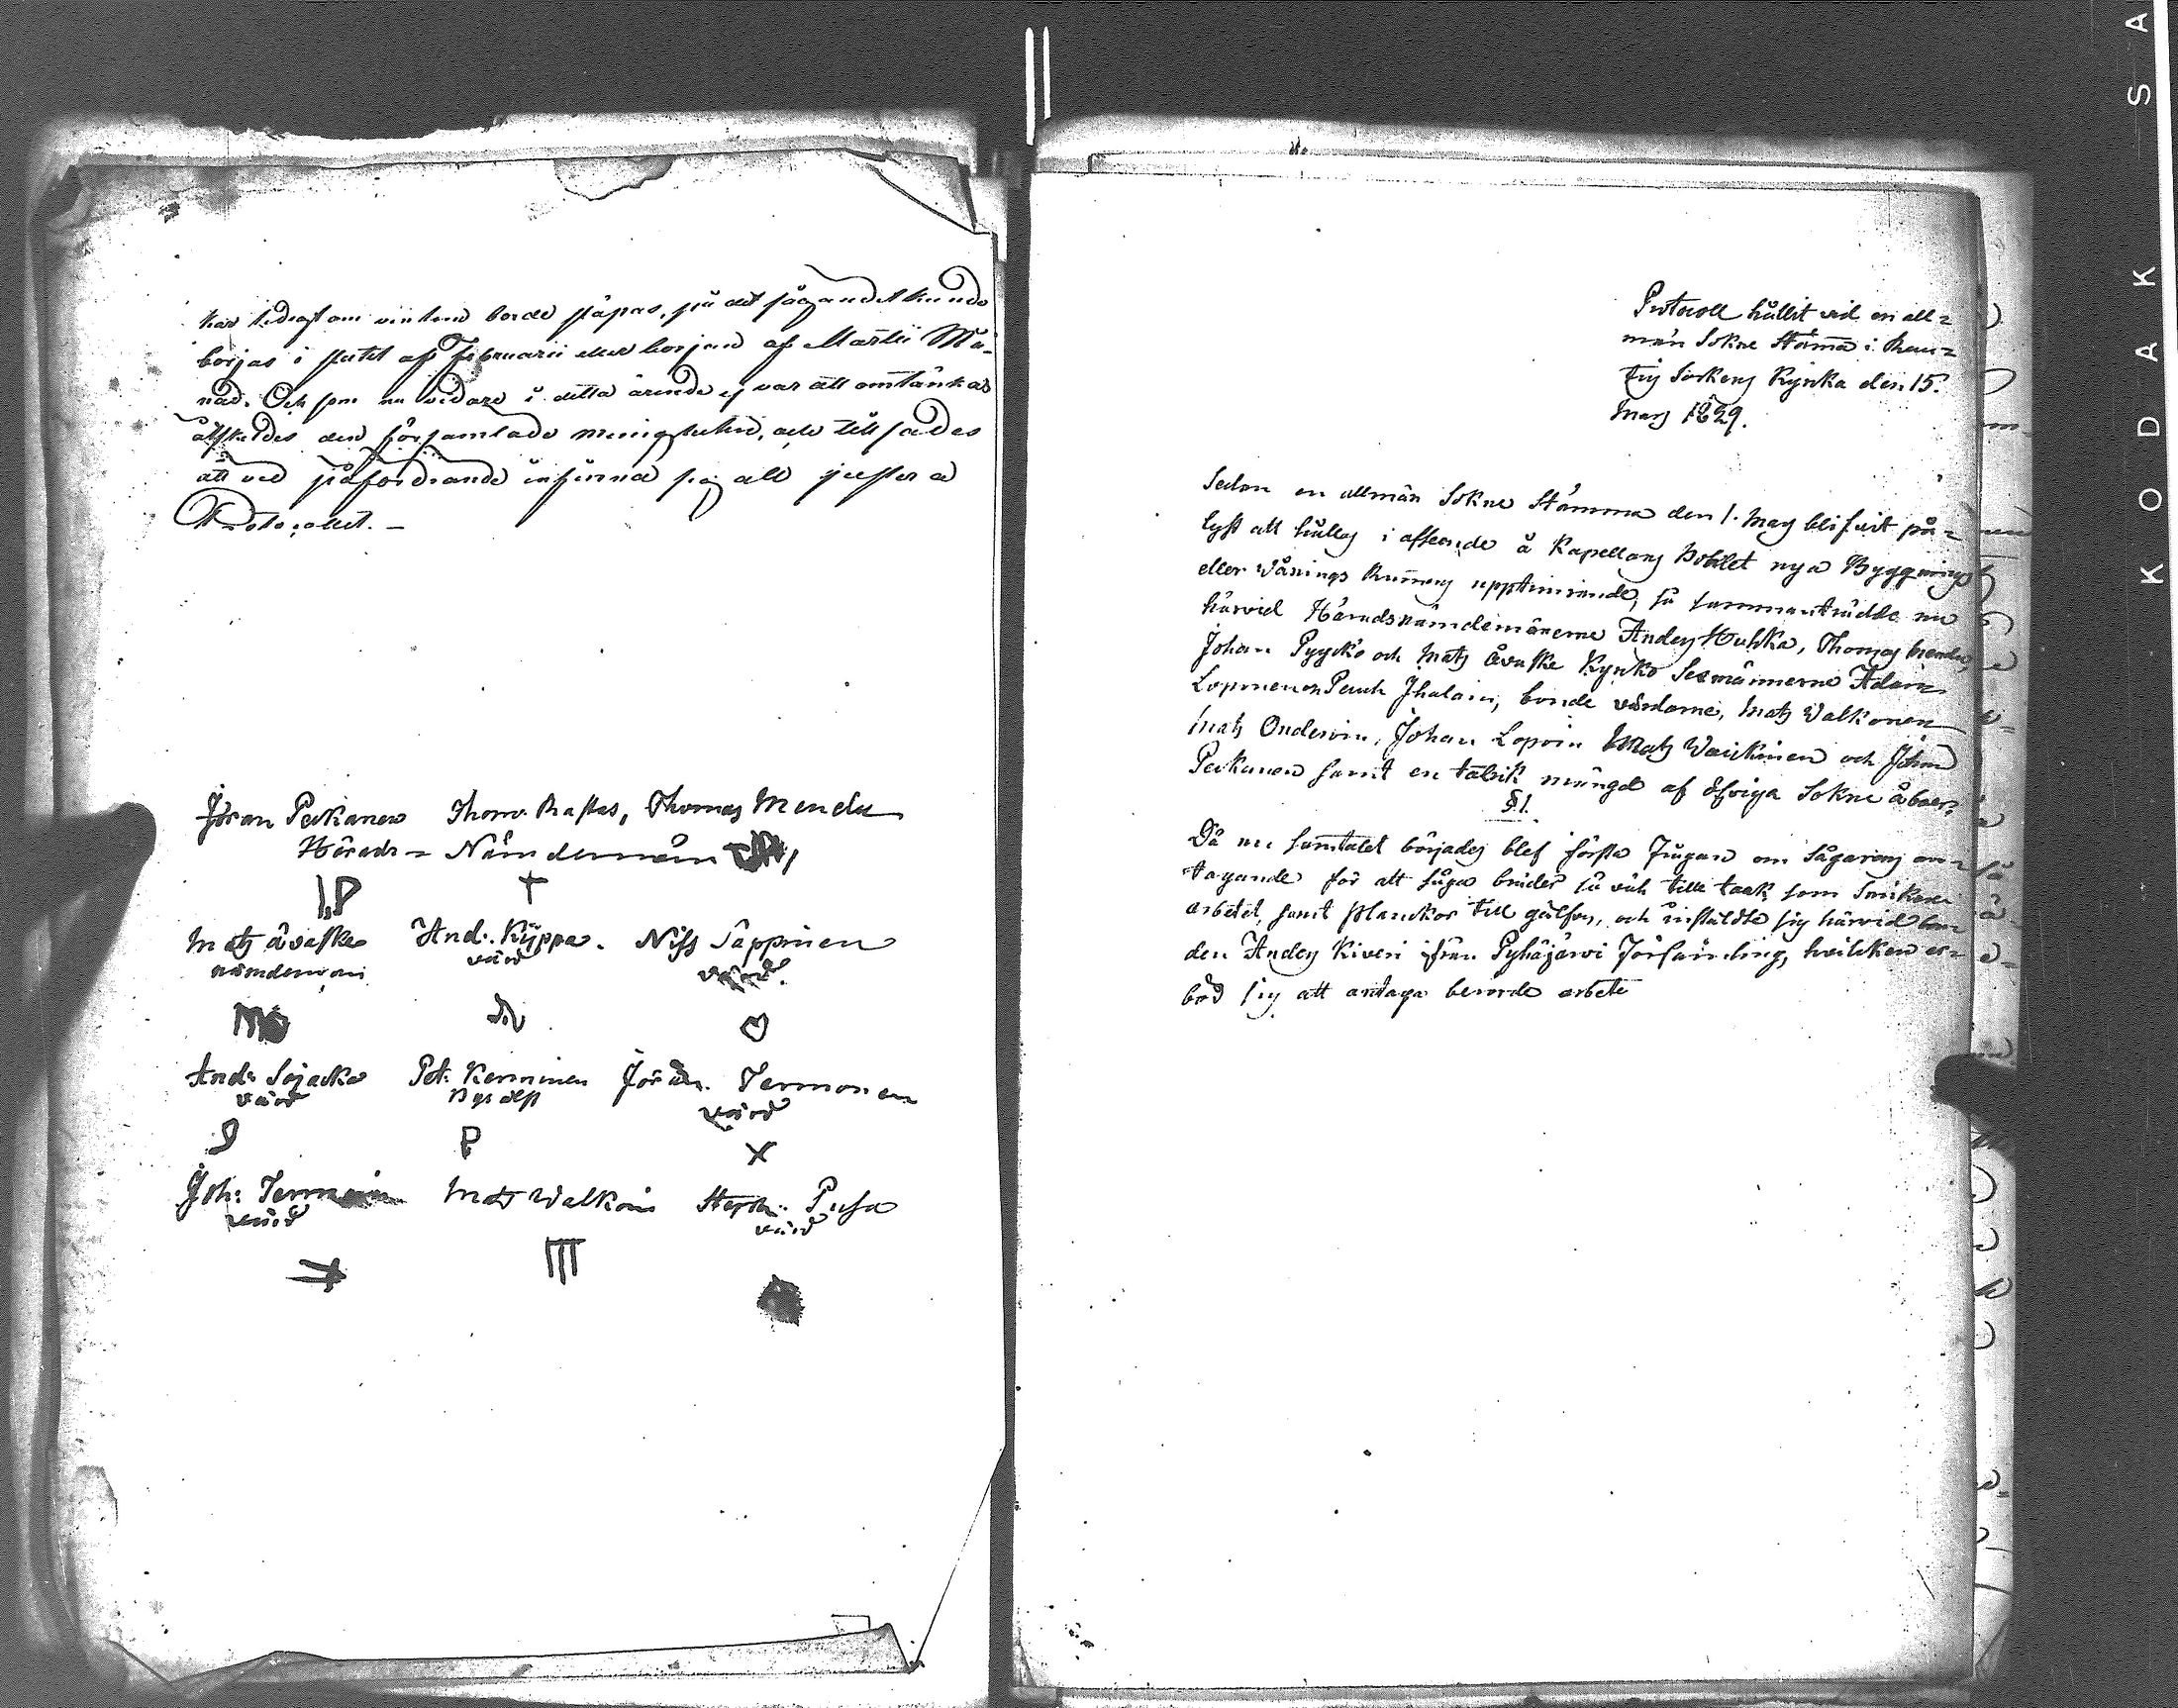 borde släpas, på det sågandet kunde
börjas i slutet af Februarii eller början af Martii Må-
nad. Och som nu vidare i detta ärende ej var att omtänkas
åtskildes den församlade menigheten, och tillsades
att vid påfordrande infinna sig att justera
Protocollet. —
Jöran Peckanen Thom. Rastas, Thomas Mendu
Härads = Nämdemän
IP †
Matz Åvaske And. Kÿppa. Nils Säppinen
nämdeman värd värd.
And. Sojacka Pet. Kemminen Jöran Termonen
värd värd
P X
Joh: Mats Walkoin Steph. Pusa
värd värd
Protocoll hållit vid en all=
män Sokne Stämma i Rau=
tus Sockens Kyrka den 15.
Maij 1829.
Sedan en allmän Sokne Stämma den 1. Maij blifvit på=
lyst att hållas i afseende å Kapellans Bohlet nya Byggnings
eller Vånings Rummens upptimrande, så sammanträdde nu
härvid Häradsnämdemännerne Anders Huhka, Thomas Mendu,
Johan Pyyckö och Matz Åvaske Kyrko Sexmännerne Adam
Loponen och Paul Ihalain, bonde värdarne, Matz Walkonen
Matz Onderoin, Johan Lopoin Matz Waickinen och Johan
Peckanen samt en talrik mängd af öfriga Sokne åboer.
§ 1.
Då nu samtalet börjades blef första Frågan om Sågarens an=
tagande för att såga bräder så väl till taak som Snikare
arbetet, samt Planckor till gålfven, och instäldte sig härvid bon
den Anders Kiveri ifrån Pyhäjärvi Församling, hvilcken er=
böd sig att antaga berörde arbete